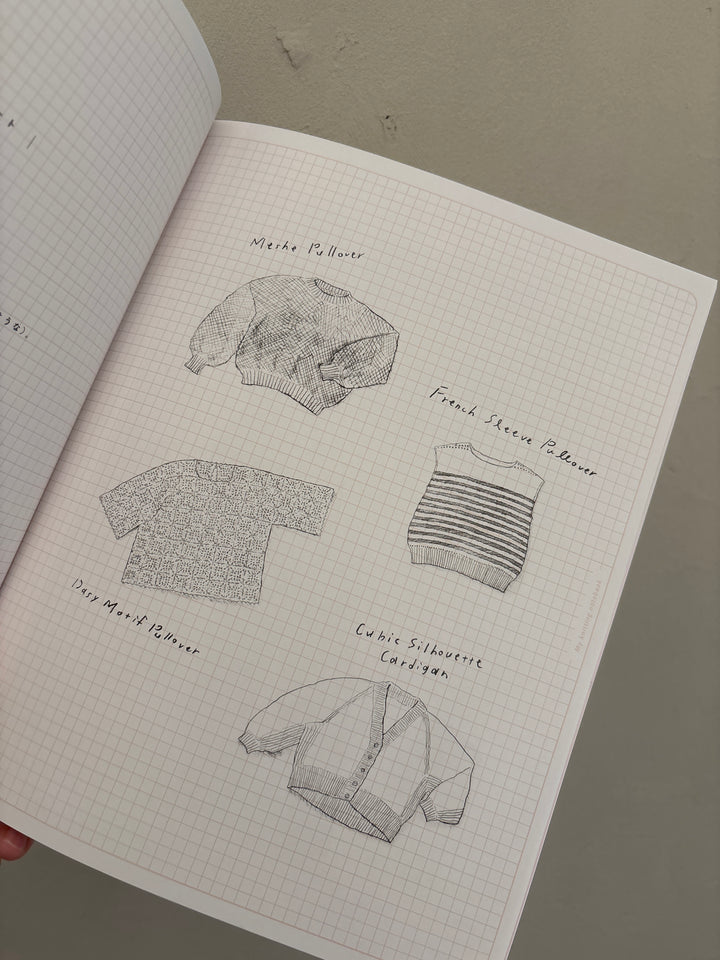 Meshe Pullover
French Sleeve Pullover
Dasy Motif Pullover
Cubic Silhouette
Cardigan
うな)。